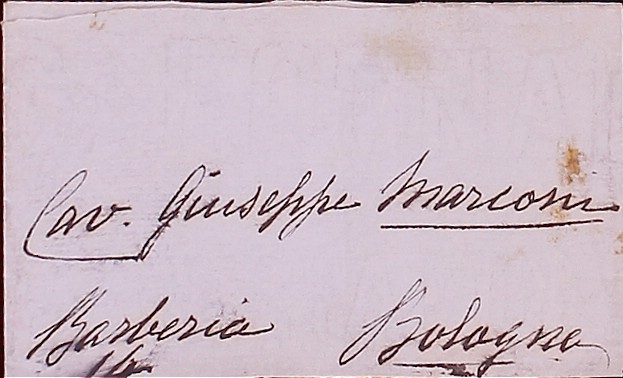 Cav. Giuseppe Marconi
Barberia Bologna